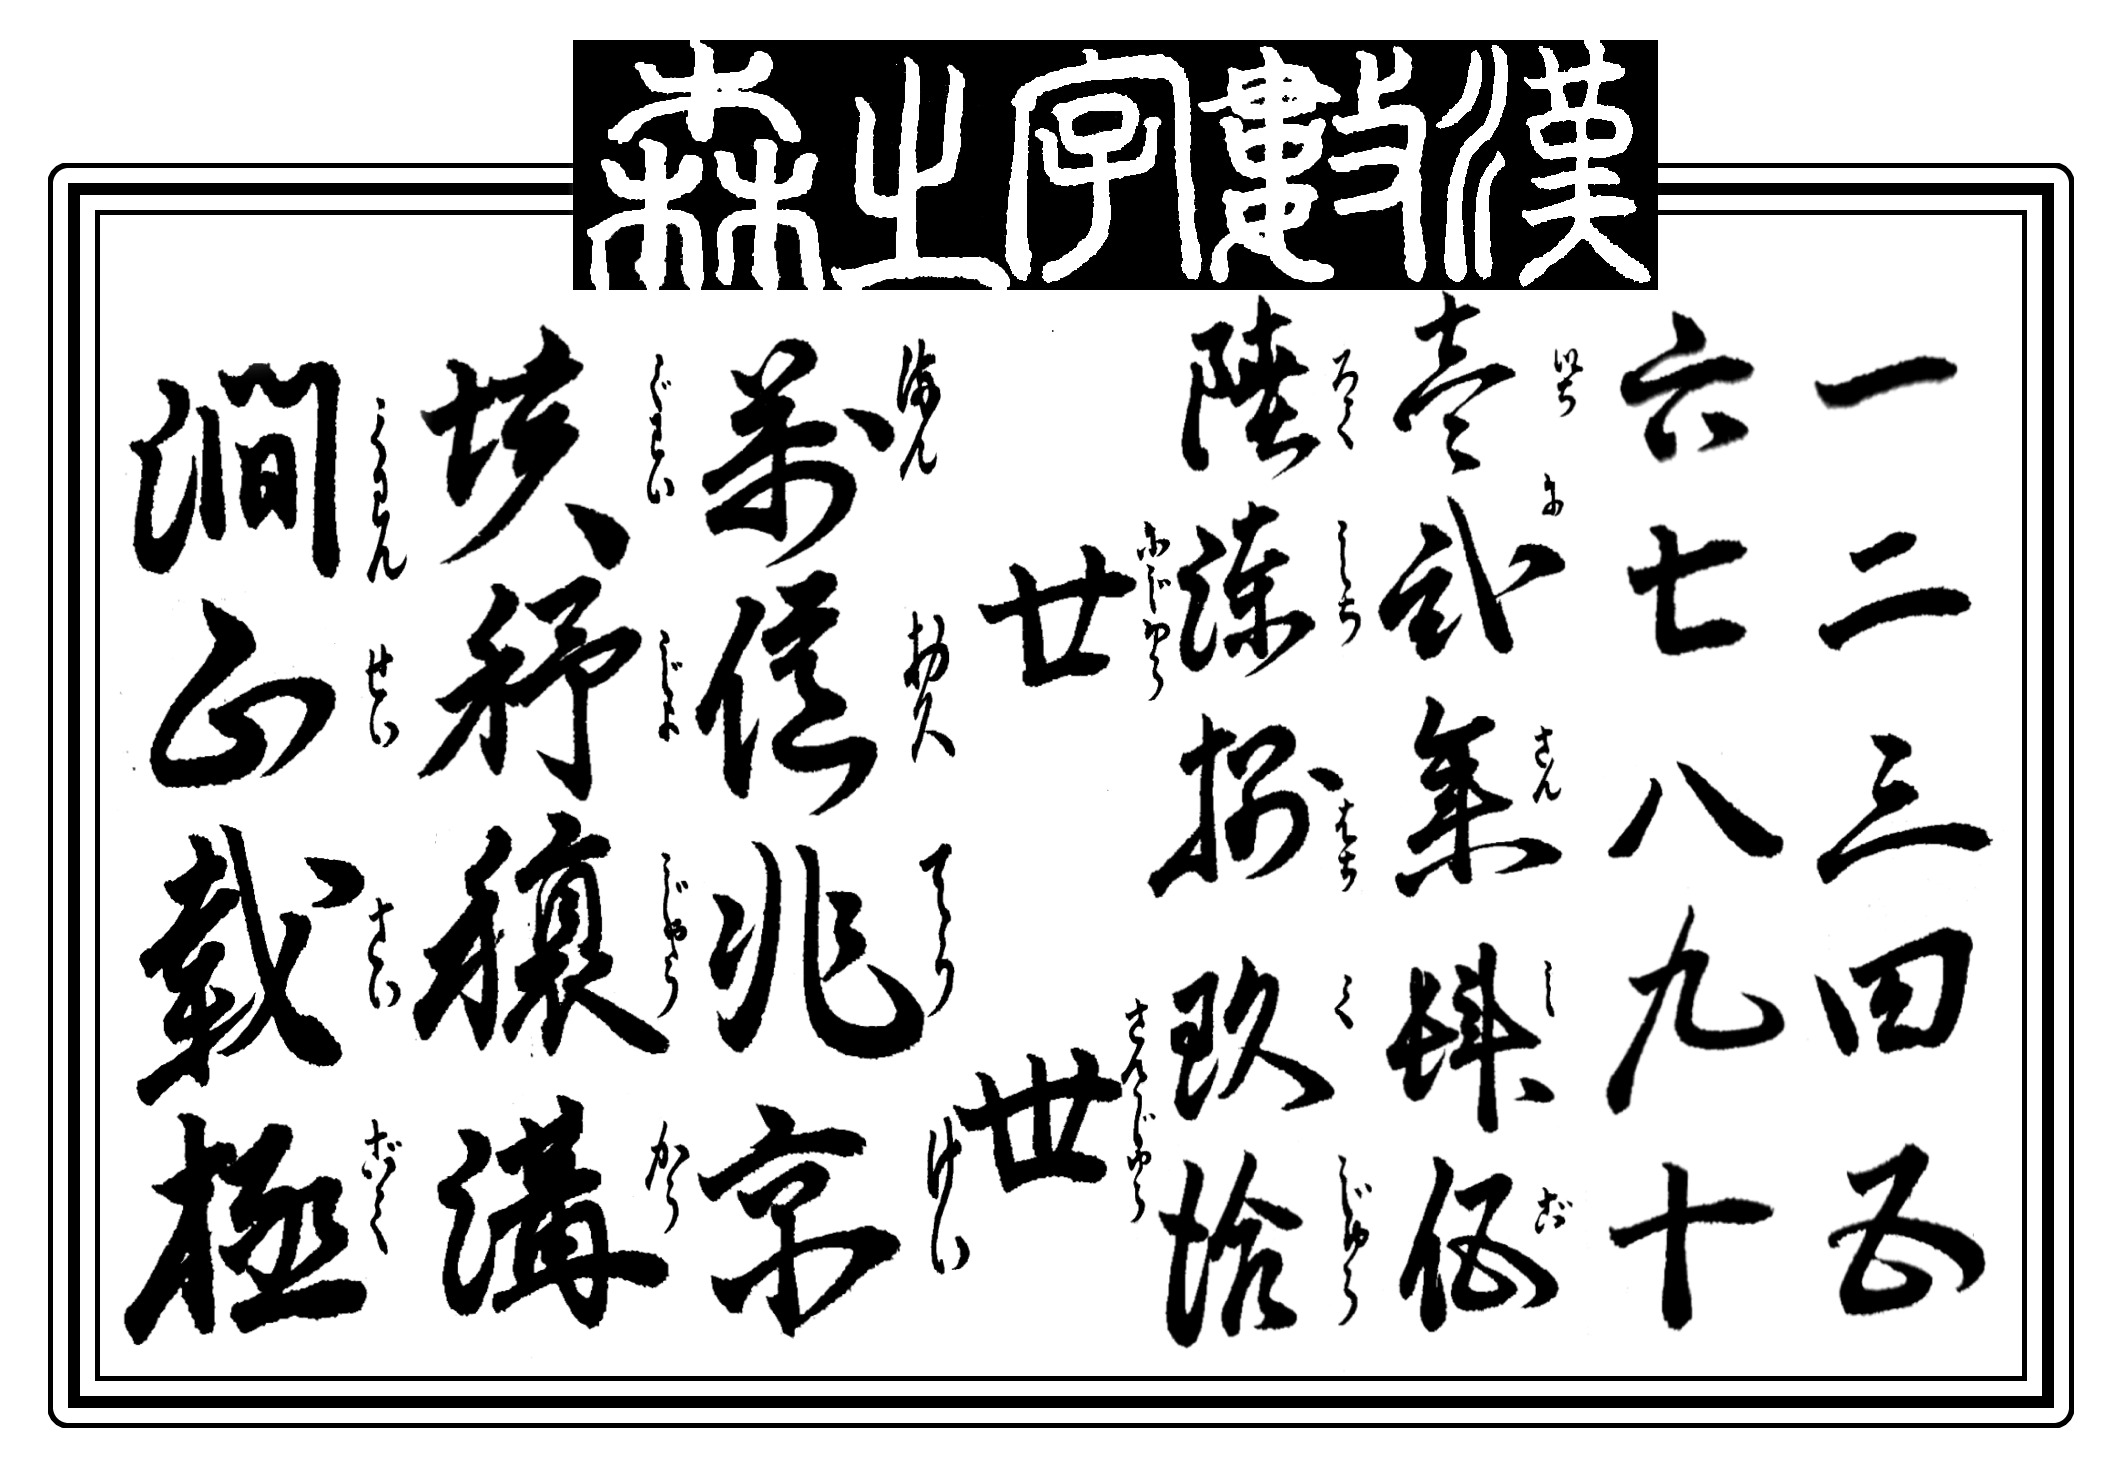 漢數字之森
一二三四五
六七八九十
いち に さん し ご
壱弐参肆伍
ろく しち はち く じゆう
陸漆捌玖拾
にじゆう さんじゆう
廿丗
まん おく てう けい
萬億兆京
ぐわい じよ じやう かう
垓秭穣溝
くわん せい さい ごく
澗正載極